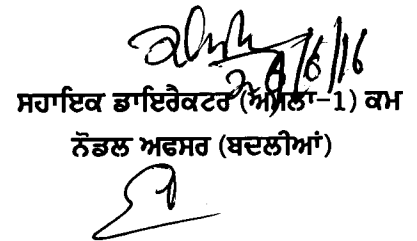 ਸਹਾਇਕ ਡਾਇਰੈਕਟਰ (ਅਮਲਾ-1) ਕਮ
ਨੋਡਲ ਅਫਸਰ (ਬਦਲੀਆਂ)